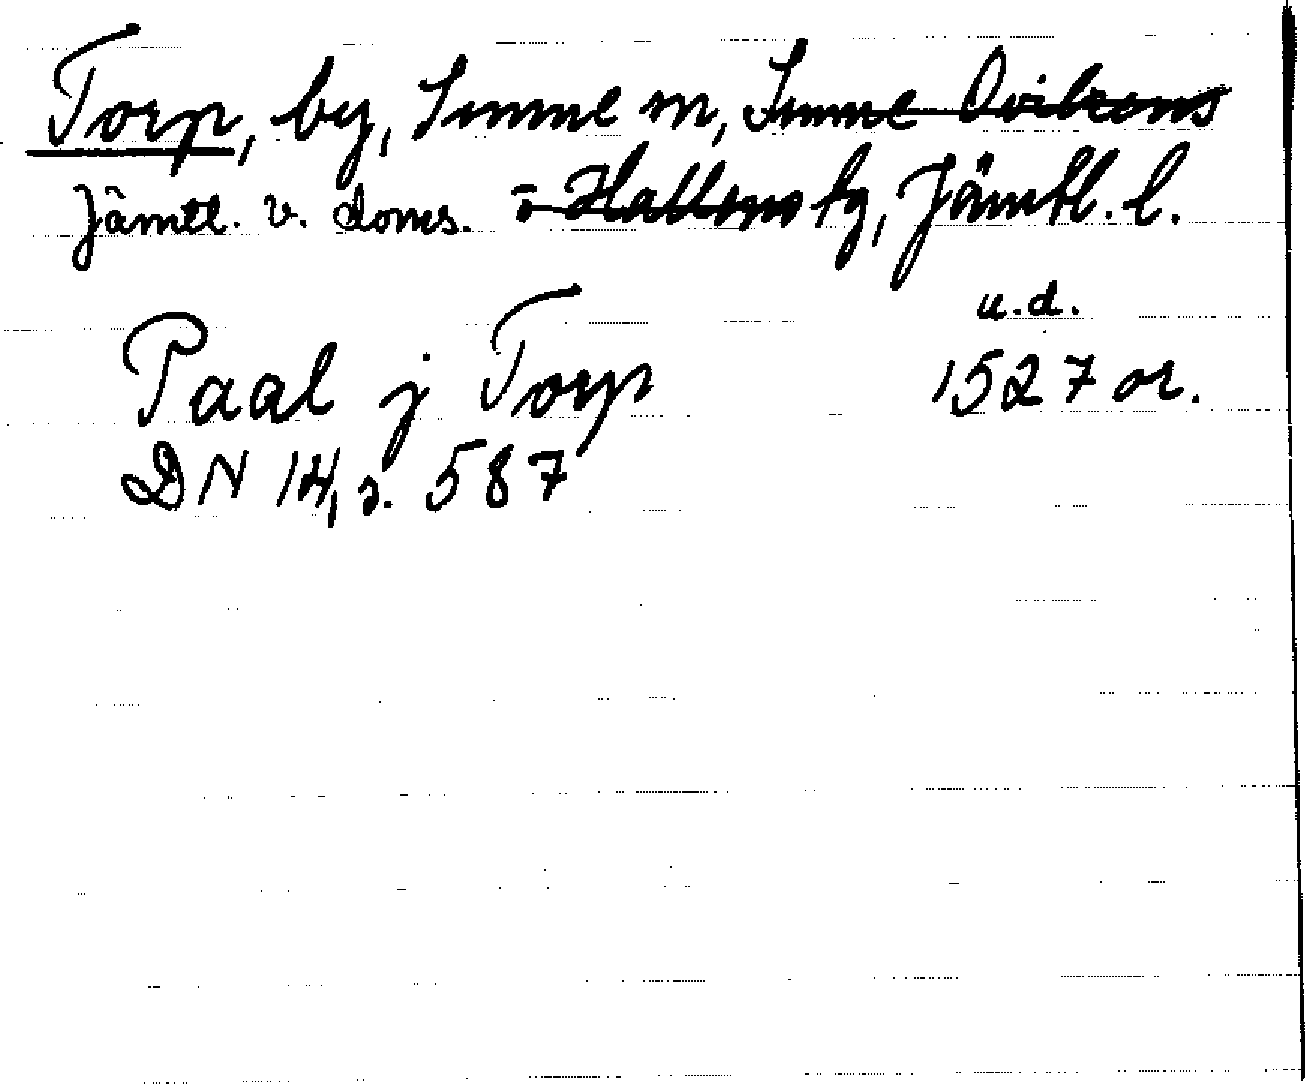 Torp, by, Sunne sn, Sunne Ovikens
Jämtl. v. doms. o Hallens tg, Jämtl. l.
u.d.
Paal j Torp 1527 or.
DN 14, s. 587